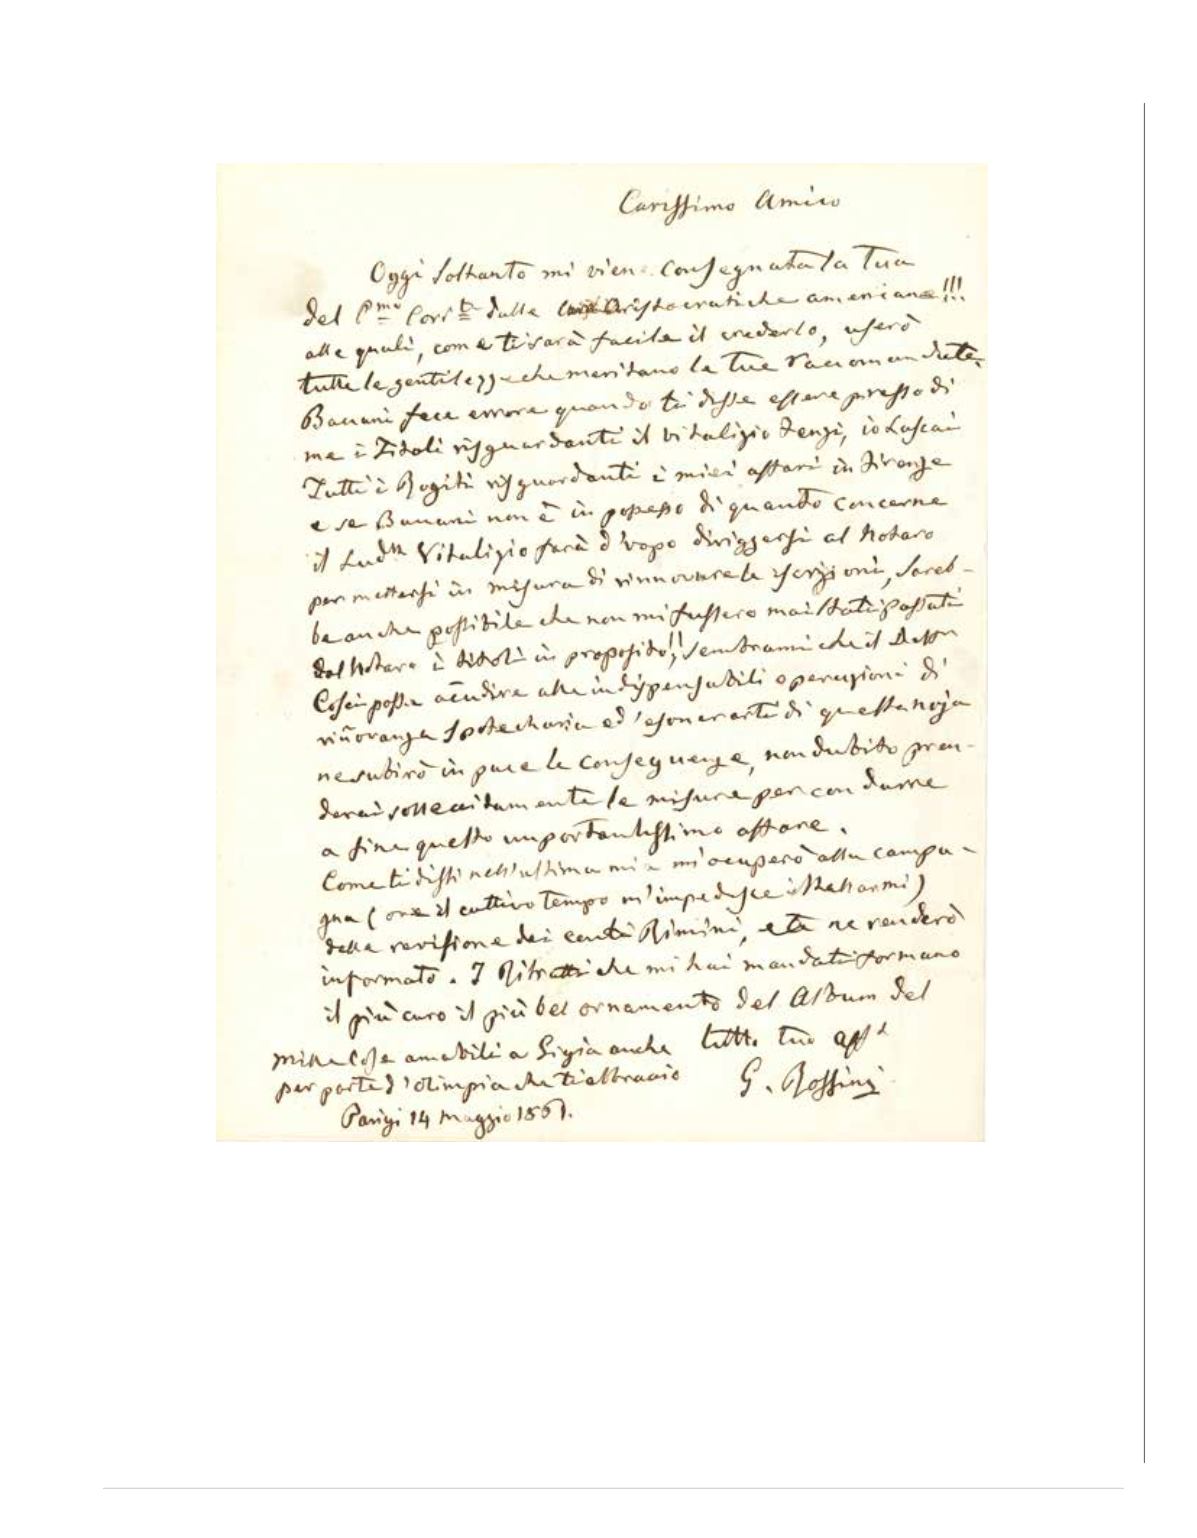 Carissimo Amico
Oggi Soltanto mi viene consegnata la Tua
del P.mo Corr.te dalle Aristocratiche americane!!!
alle quali, come ti sarà facile il crederlo, userò
tutte le gentilezze che meritano le Tue raccomandate.
Baccani fece errore quando ti disse essere presso di
me i Titoli risguardanti il Vitalizio Fenzi, io Lasciai
Tutti i Rogiti risguardanti i miei affari in Firenze
e se Baccani non è in possesso di quanto concerne
il Sud.to Vitalizio farà d'uopo diriggersi al Notaro
per mettersi in misura di rinnovare le iscrizioni, Sareb-
be anche possibile che non mi fussero mai stati passati
dal Notaro i titoli in proposito!! Sembrami che il
possa accudire alle indispensabili operazioni di
rin̄ovanza Ipotecharia ed'esonerarti di questa noja
ne subirò in pace le conseguenze, non dubito pren-
derai sollecitamente le misure per condurre
a fine questo importantissimo affare.
Come ti dissi nell'ultima mia m'ocuperò alla campa-
gna (ove il cattivo Tempo m'impedisce installarmi)
della revisione dei conti Rimini, e te ne renderò
informato. I Ritratti che mi hai mandati formano
il più caro il più bel ornamento del Album del
Mille Cose amabili a Gigia anche tutto tuo aff.o
per parte d'Olimpia che ti abbraccio G. Rossini
Parigi 14 Maggio 1861.